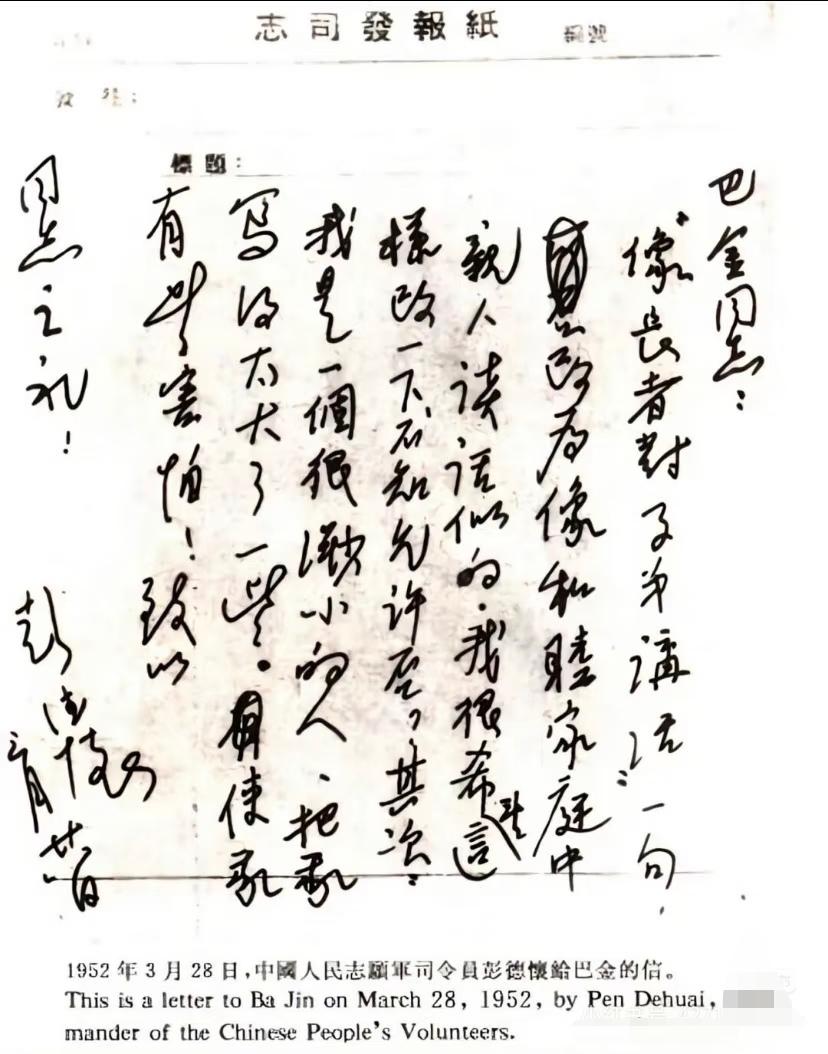 志司發報紙 編號
標題:
巴金同志:
“像長者對子弟講话”一句,
改为像和睦家庭中
親人谈话似的.我很希望這
樣改一下不知允许否,其次:
我是一個很渺小的人、把我
写得太大了一些。使我
有些害怕!致以
同志之礼!
彭德怀
三月廿八日
1952年3月28日,中國人民志願軍司令員彭德懷給巴金的信。
This is a letter to Ba Jin on March 28, 1952, by Pen Dehuai,
mander of the Chinese People's Volunteers.